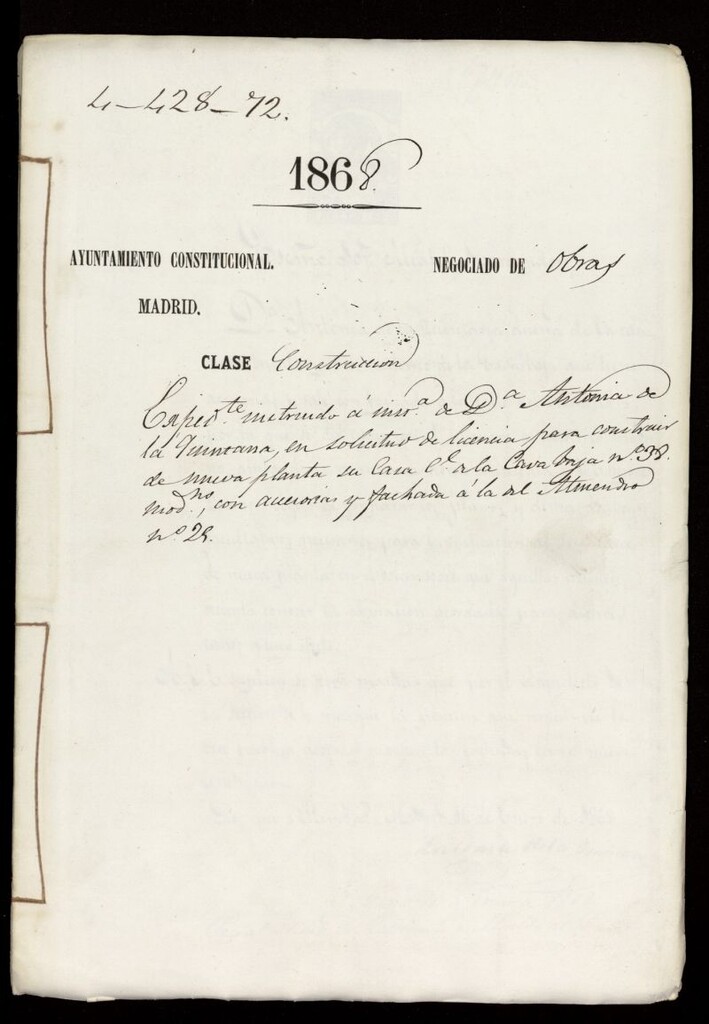 4-428-72.
1868.
AYUNTAMIENTO CONSTITUCIONAL.
NEGOCIADO DE Obras
MADRID.
CLASE Construccion
Exped.te instruido á ins.a de D.a Antonia de
la Quintana, en solicitud de licencia para construir
de nueva planta su Casa C.e de la Cava baja nº 38.
mod.no, con accesorias y fachada á la del Almendro
nº 28.